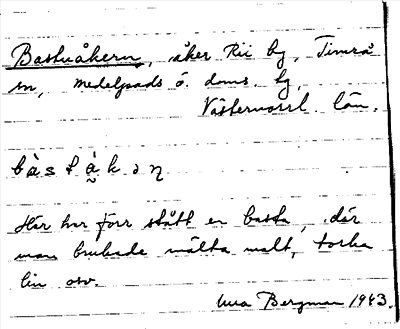 Bastuåkern, åker Rii by, Timrå
sn, Medelpads ö. doms. hg,
Västernorrl. län.
bàstàkən
Här har förr stått en basta, där
man brukade mälta malt, torka
lin osv.
Bergman 1943.